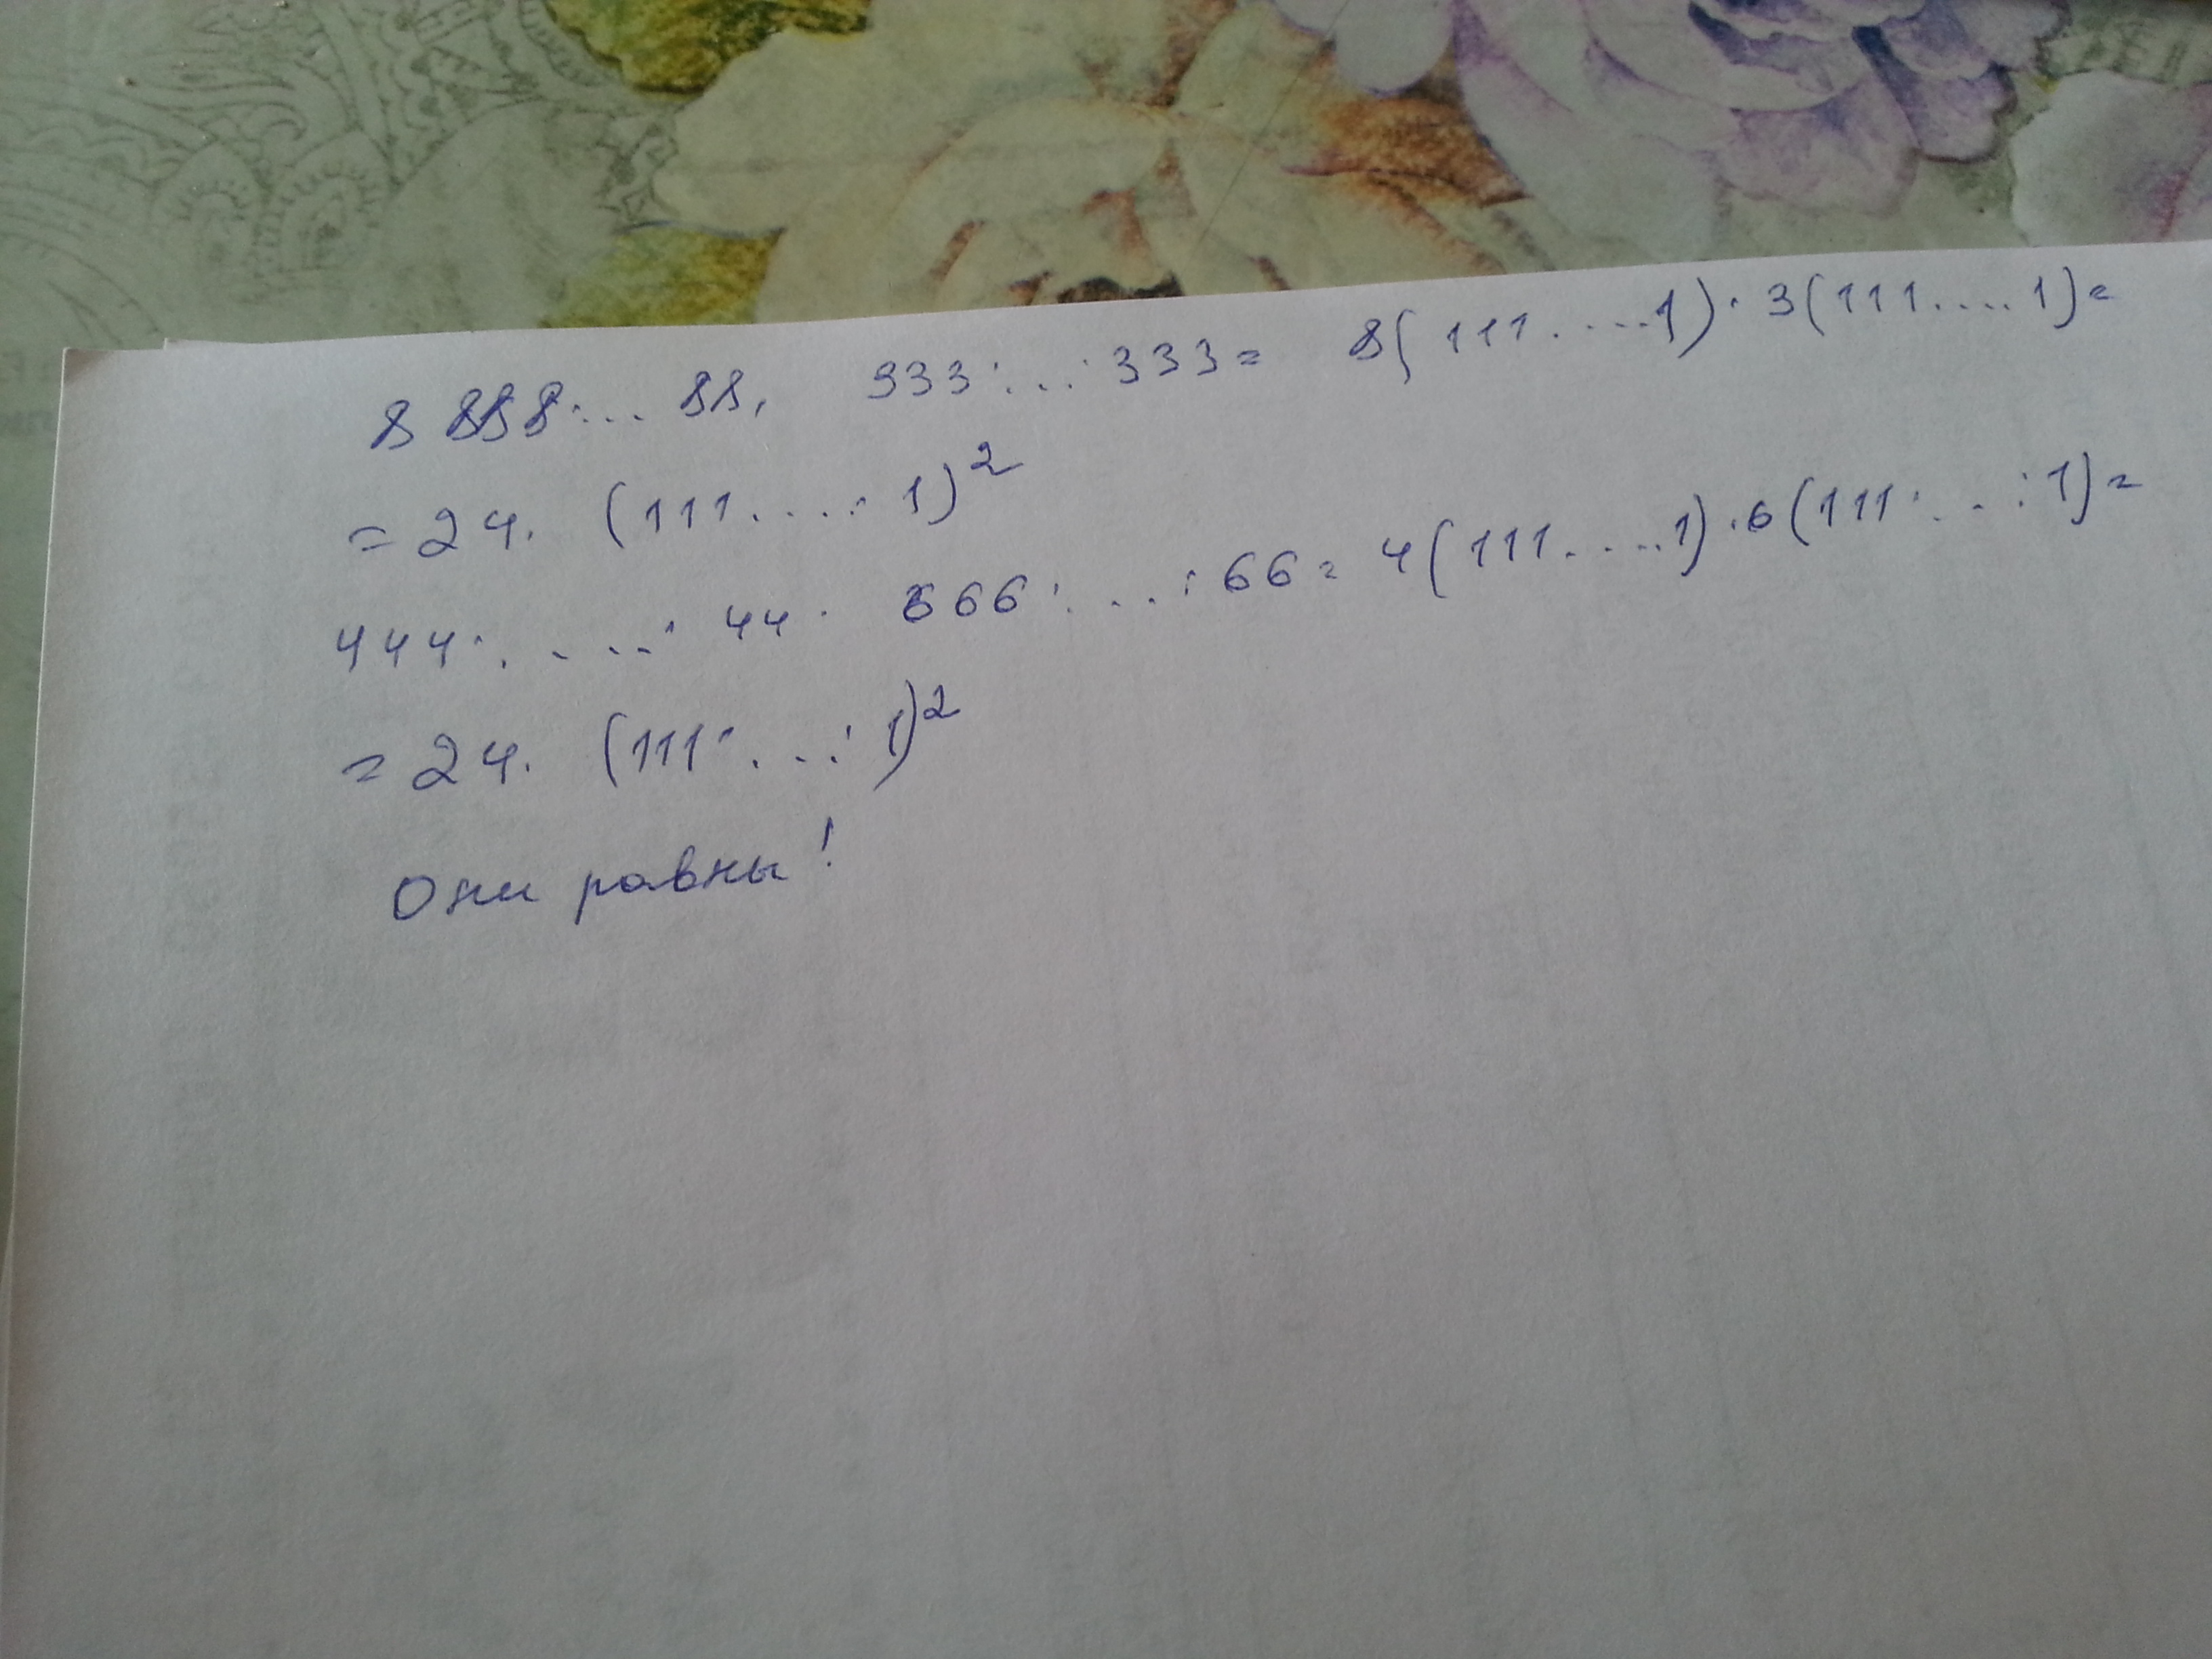 8888... 88. 333 ... 333 = 8(111....1)·3(111....1)=
= 24. (111....1)²
444.....44. 666....66 = 4(111....1)·6(111....1)=
= 24. (111....1)²
Они равны!